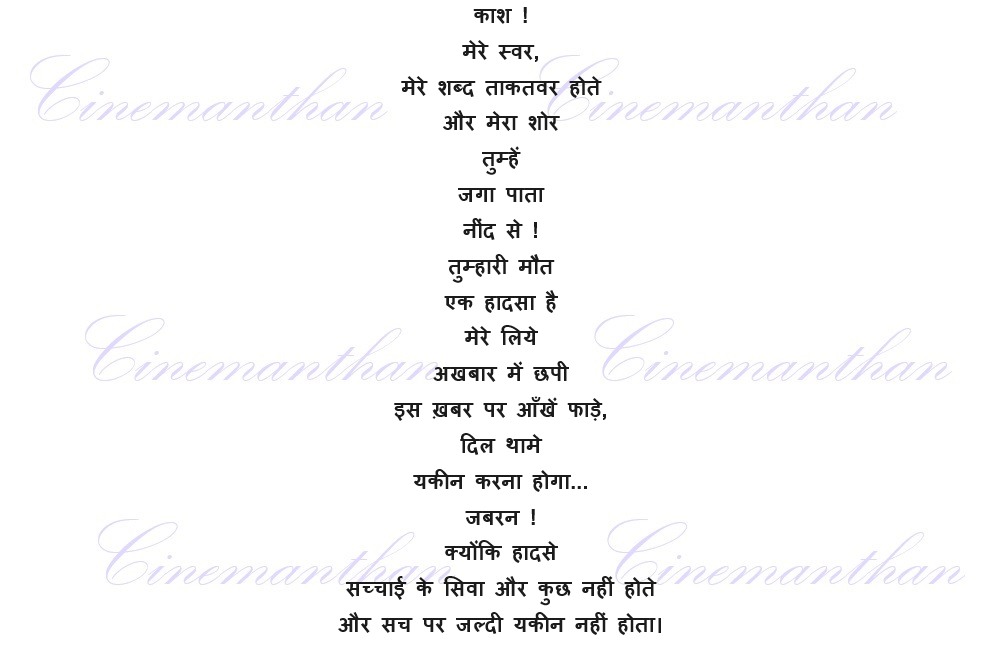 काश !
मेरे स्वर,
मेरे शब्द ताकतवर होते
और मेरा शोर
तुम्हें
जगा पाता
नींद से !
तुम्हारी मौत
एक हादसा है
मेरे लिये
अखबार में छपी
इस ख़बर पर आँखें फाड़े,
दिल थामे
यकीन करना होगा...
जबरन !
क्योंकि हादसे
सच्चाई के सिवा और कुछ नहीं होते
और सच पर जल्दी यकीन नहीं होता।
Cinemanthan
Cinemanthan
Cinemanthan
Cinemanthan
Cinemanthan
Cinemanthan